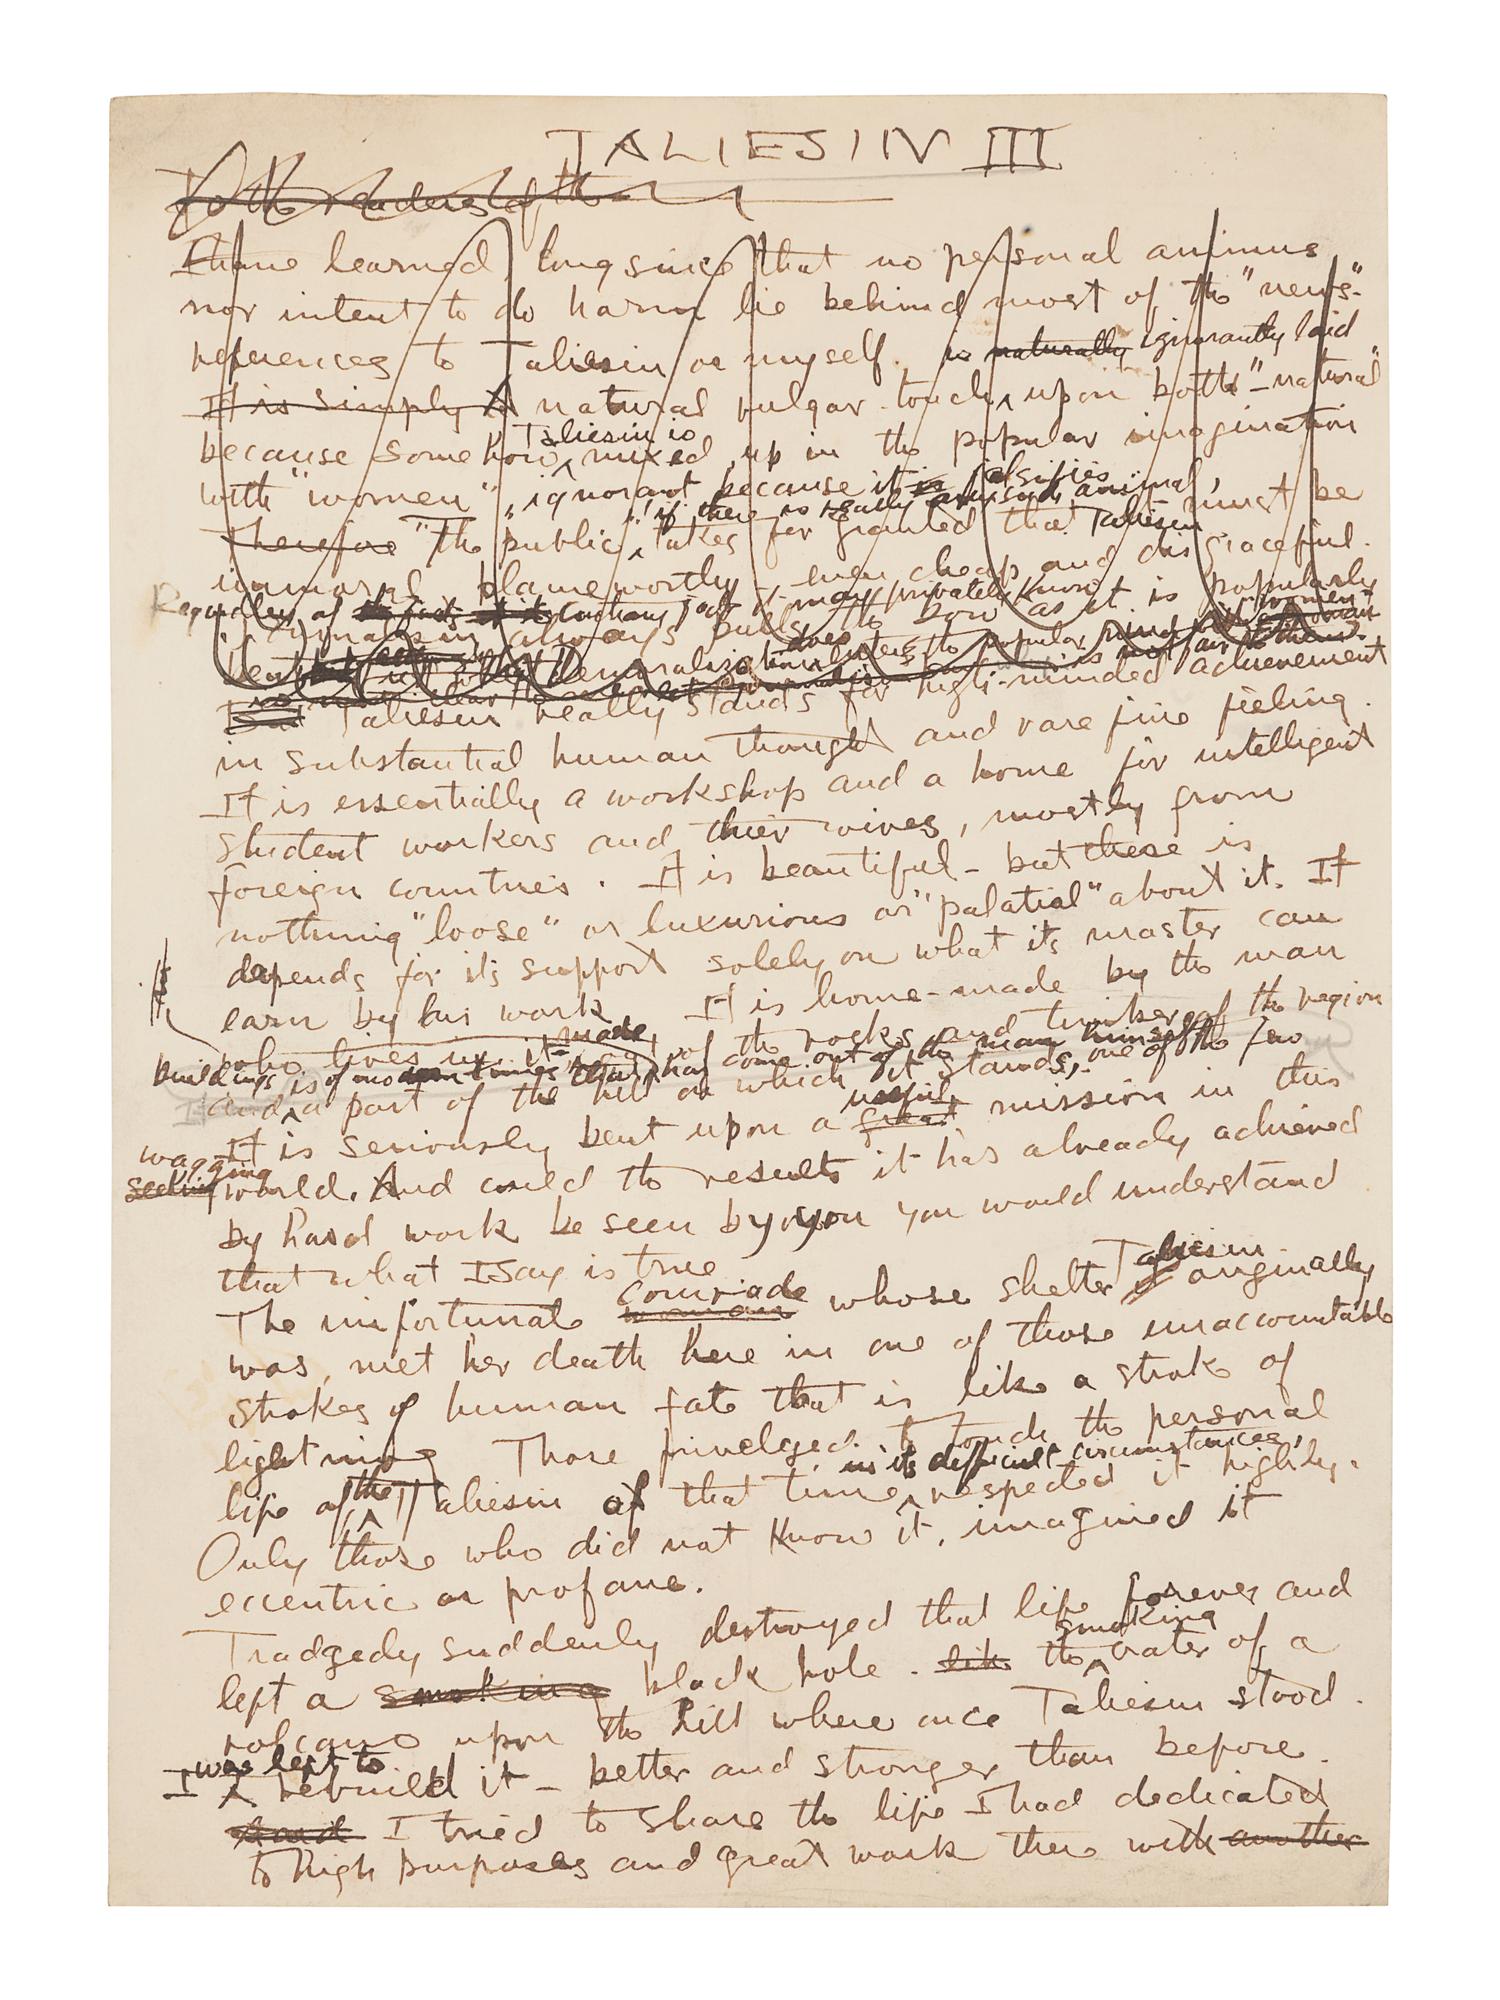 TALIESIN III
To the readers of the
I have learned, long since that no personal animus
nor intent to do harm lie behind most of the "news"-
references to Taliesin or myself.
is naturally ignorantly laid
It is simply A natural vulgar touch, upon both - "natural"
because somehow Taliesin is mixed up in the popular imagination
with "women", ignorant because it is falsifies
if there is really any such animal,
Therefore "The public", takes for granted that Taliesin must be
immoral, blameworthy, even cheap and disgraceful.
Regardless of the facts may privately know
always pulls the bow as it is popularly
But Taliesin really stands for high-minded achievement
in substantial human thought and rare fine feeling.
It is essentially a workshop and a home for intelligent
student workers and thier wives, mostly from
foreign countries. It is beautiful - but there is
nothing "loose" or luxurious or "palatial" about it. It
depends for its support solely on what its master can
earn by his work. It is home-made by the man
who lives in it - made, of the rocks and timber of the region
buildings of modern times that has come out of the man himself
and is a part of the hill on which it stands, one of the few
It is seriously bent upon a great useful mission in this
wagging
seeking world. And could the results it has already achieved
by hard work be seen by you you would understand
that what I say is true
The unfortunate woman comrade whose shelter Taliesin originally
was, met her death here in one of those unaccountable
strokes of human fate that is like a stroke of
lightning. Those priveleged to touch the personal
in its difficult circumstances,
life of the Taliesin of that time, respected it highly.
Only those who did not know it, imagined it
eccentric or profane.
Tradgedy suddenly destroyed that life forever and
left a smoking black hole. like the smoking crater of a
volcano upon the hill where once Taliesin stood.
I was left to rebuild it - better and stronger than before.
And I tried to share the life I had dedicated
to high purposes and great work there with another